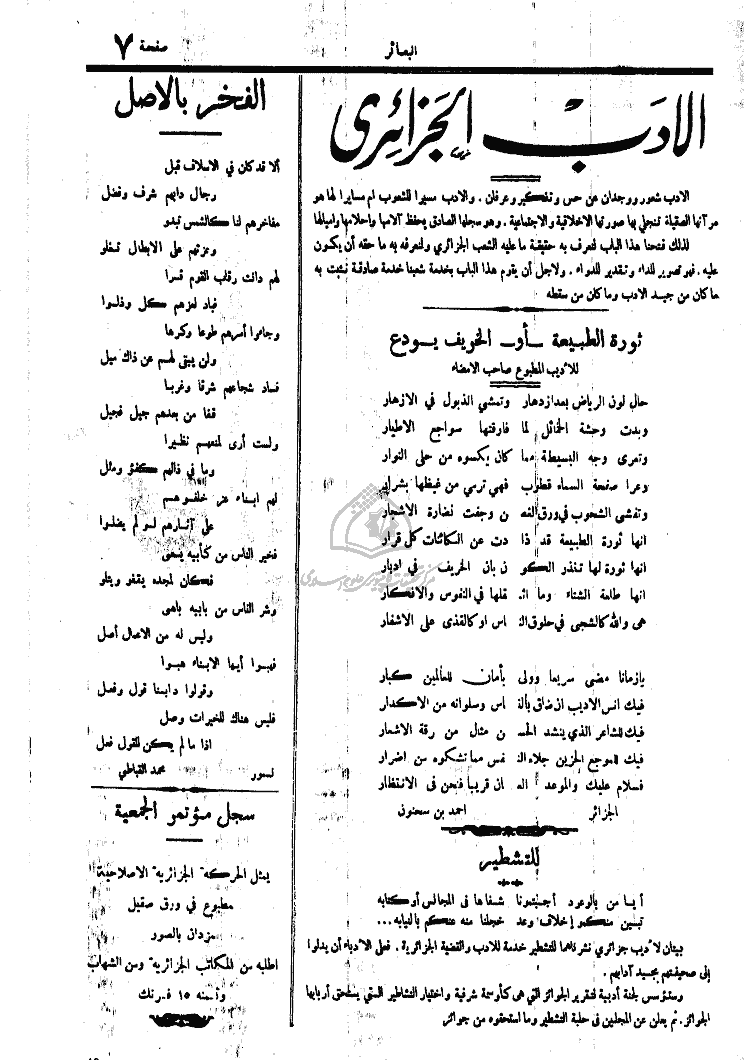 صفحة ٧
البصائر
الادب الجزائري
الادب شعور ووجدان عن حس وتفكير وعرفان . والادب مسيرا للشعوب ام مسايرا لها هو
مرآتها الصقيلة تنجلي بها صورتها الاخلاقية والاجتماعية . وهو سجلها الصادق يحفظ آلامها واحلامها واميالها
لذلك فتحنا هذا الباب لنعرف به حقيقة ما عليه الشعب الجزائري ولنعرفه به ما حقه أن يكون
عليه . فهو تصوير للداء وتقدير للدواء . ولاجل أن يقوم هذا الباب بخدمة شعبنا خدمة صادقة نثبت به
ما كان من جيد الادب وما كان من سقطه
ثورة الطبيعة ــ أو ــ الخريف يودع
للأديب المطبوع صاحب الامضاء
حال لون الرياض بعد ازدهار وتمشي الذبول في الازهار
وبدت وحشة الخمائل لما فارقتها سواجع الاطيار
وتعرى وجه البسيطة مما كان يكسوه من حلى النوار
وعرا صفحة السماء قطوب فهي ترمي من غيظها بشرار
وتفشى الشحوب في ورق الغصـ ـن وجفت نضارة الاشجار
انها ثورة الطبيعة قد ذا دت عن الكائنات كل قرار
انها ثورة لها تنذر الكو ن بان الخريف في ادبار
انها طلعة الشتاء وما اثـ ـقلها في النفوس والافكار
هى والله كالشجى في حلوق النـ ـاس او كالقذى على الاشفار
يازمانا مضى سريعا وولى بأمان للعالمين كبار
فيك انس الاديب ان ضاق بالنـ ـاس وسلوانه من الاكدار
فيك للشاعر الذي ينشد الحسـ ـن مثال من رقة الاشعار
فيك للموجع الحزين جلاء النـ ـفس مما تشكوه من اضرار
فسلام عليك والموعد الآ ان قريبا فنحن فى الانتظار
الجزائر احمد بن سحنون
للتشطير
أيا من بالوعود أجبتمونا شفاها فى المجالس أو كتابه
تبين منكمو إخلاف وعد خجلنا منه عنكم بالنيابه...
بيتان لأديب جزائري نشرناهما للتشطير خدمة للادب والقضية الجزائرية . فعلى الادباء أن يدلوا
إلى صحيفتهم بجيد آدابهم .
وستؤسس لجنة أدبية لتقرير الجوائز التي هى كأوسمة شرفية واختيار التشاطير التي يستحق أربابها
الجوائز . ثم يعلن عن المجلين فى حلبة التشطير وما استحقوه من جوائز
الفخر بالاصل
ألا قد كان في الاسلاف قبل
رجال دابهم شرف وفضل
مفاخرهم لنا كالشمس تبدو
وعزتهم على الابطال تعلو
لهم دانت رقاب القوم قسرا
فباد لعزهم كل وذلوا
وجاءوا أسرهم طوعا وكرها
ولن يبقى لهم عن ذاك ميل
فساد شجاعهم شرقا وغربا
قفا من بعدهم جيل فجيل
ولست أرى لمتعهم نظيرا
وما فى ذالهم كفئؤ ومثل
لهم ابناء عز خلفوهم
على آثارهم لو لم يضلوا
فخير الناس من كأبيه يسعى
فكان لمجده يقفو ويتلو
وشر الناس من بابيه باهى
وليس له من الاعمال أصل
فهبوا أيها الابناء هبوا
وقولوا دابنا قول وفصل
فليس هناك للخيرات وصل
اذا ما لم يكن للقول فعل
تسور محمد القباطي
سجل مؤتمر الجمعية
يمثل الحركة الجزائرية الاصلاحية
مطبوع في ورق صقيل
مزدان بالصور
اطلبه من المكاتب الجزائرية ومن الشهاب
وثمنه ١٥ فرنك